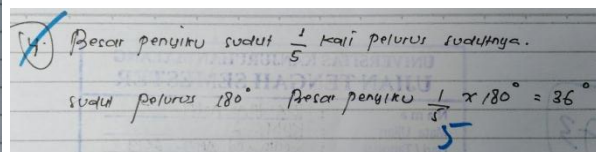 4. Besar penyiku sudut 1/5 kali pelurus sudutnya.
sudut pelurus 180° Besar penyiku 1/5 x 180° = 36°
5